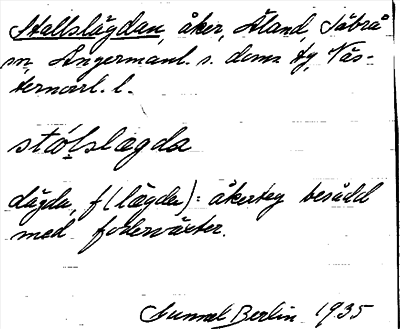 Stallslägdan, åker, Åland, Säbrå
sn, Ångermanl. s. doms tg, Väs-
ternorrl. l.
stáḷslægda
lägda, f (lägda): åkerteg besådd
med foderväxter.
Gunnel Berlin 1935